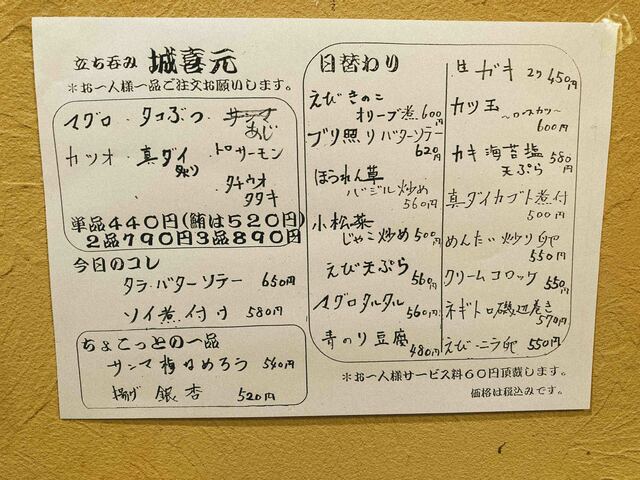 立ち呑み 城喜元
※お一人様一品ご注文お願いします。
マグロ・タコぶつ・サンマ
あじ
カツオ・真ダイ トロサーモン
タチウオ
タタキ
単品440円(鮪は520円)
2品790円3品890円
今日のコレ
タラ・バターソテー 650円
ソイ煮付け 580円
ちょこっとの一品
サンマ梅きぬろう 540円
揚げ銀杏 520円
日替わり
えびきのこ
オリーブ煮 600円
ブリ照りバターソテー
620円
ほうれん草
バジル炒め
560円
小松菜
じゃこ炒め 500円
えび天ぷら 560円
マグロタルタル 560円
青のり豆腐 480円
生ガキ 2ケ 450円
カツ玉 〜ロースカツ〜
600円
カキ海苔塩 580円
天ぷら
真ダイカブト煮付
500円
めんたい炒り卵
550円
クリームコロッケ 550円
ネギトロ磯辺巻き
570円
えび・ニラ卵 550円
※お一人様サービス料60円頂戴します。
価格は税込みです。